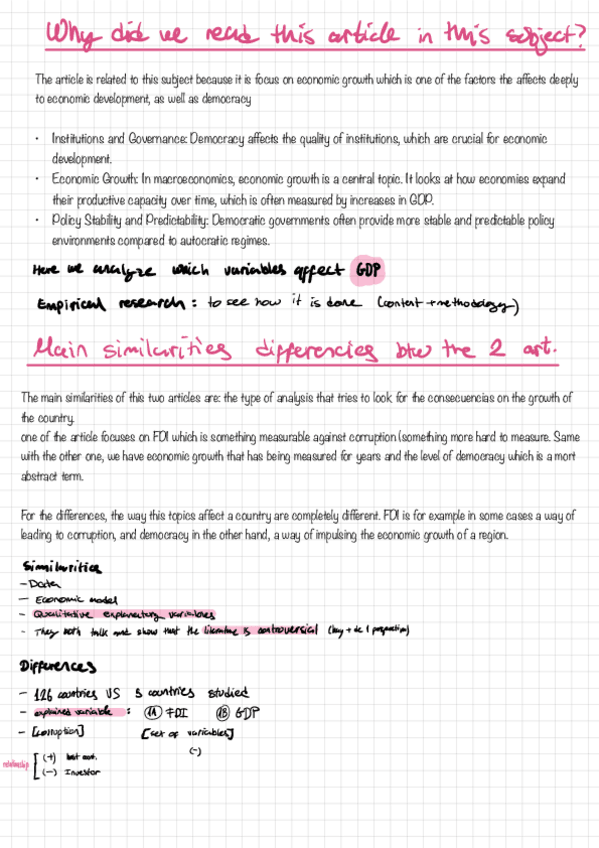 Why did we read this article in this subject?
The article is related to this subject because it is focus on economic growth which is one of the factors the affects deeply
to economic development, as well as democracy
• Institutions and Governance: Democracy affects the quality of institutions, which are crucial for economic
development.
• Economic Growth: In macroeconomics, economic growth is a central topic. It looks at how economies expand
their productive capacity over time, which is often measured by increases in GDP.
• Policy Stability and Predictability: Democratic governments often provide more stable and predictable policy
environments compared to autocratic regimes.
Here we analyze which variables affect GDP
Empirical research: to see how it is done (content + methodology)
Main similarities differencies btw the 2 art.
The main similarities of this two articles are: the type of analysis that tries to look for the consecuencias on the growth of
the country.
one of the article focuses on FDI which is something measurable against corruption (something more hard to measure. Same
with the other one, we have economic growth that has being measured for years and the level of democracy which is a mort
abstract term.
For the differences, the way this topics affect a country are completely different. FDI is for example in some cases a way of
leading to corruption, and democracy in the other hand, a way of impulsing the economic growth of a region.
Similarities
- Data
- Economic model
- Qualitative explanatory variables
- They both talk and show that the literature is controversial
Differences
- 126 countries VS 5 countries studied
- explained variable : 1A FDI 1B GDP
- [corruption] [set of variables]
(-)
relationship (+)
(-) Investor